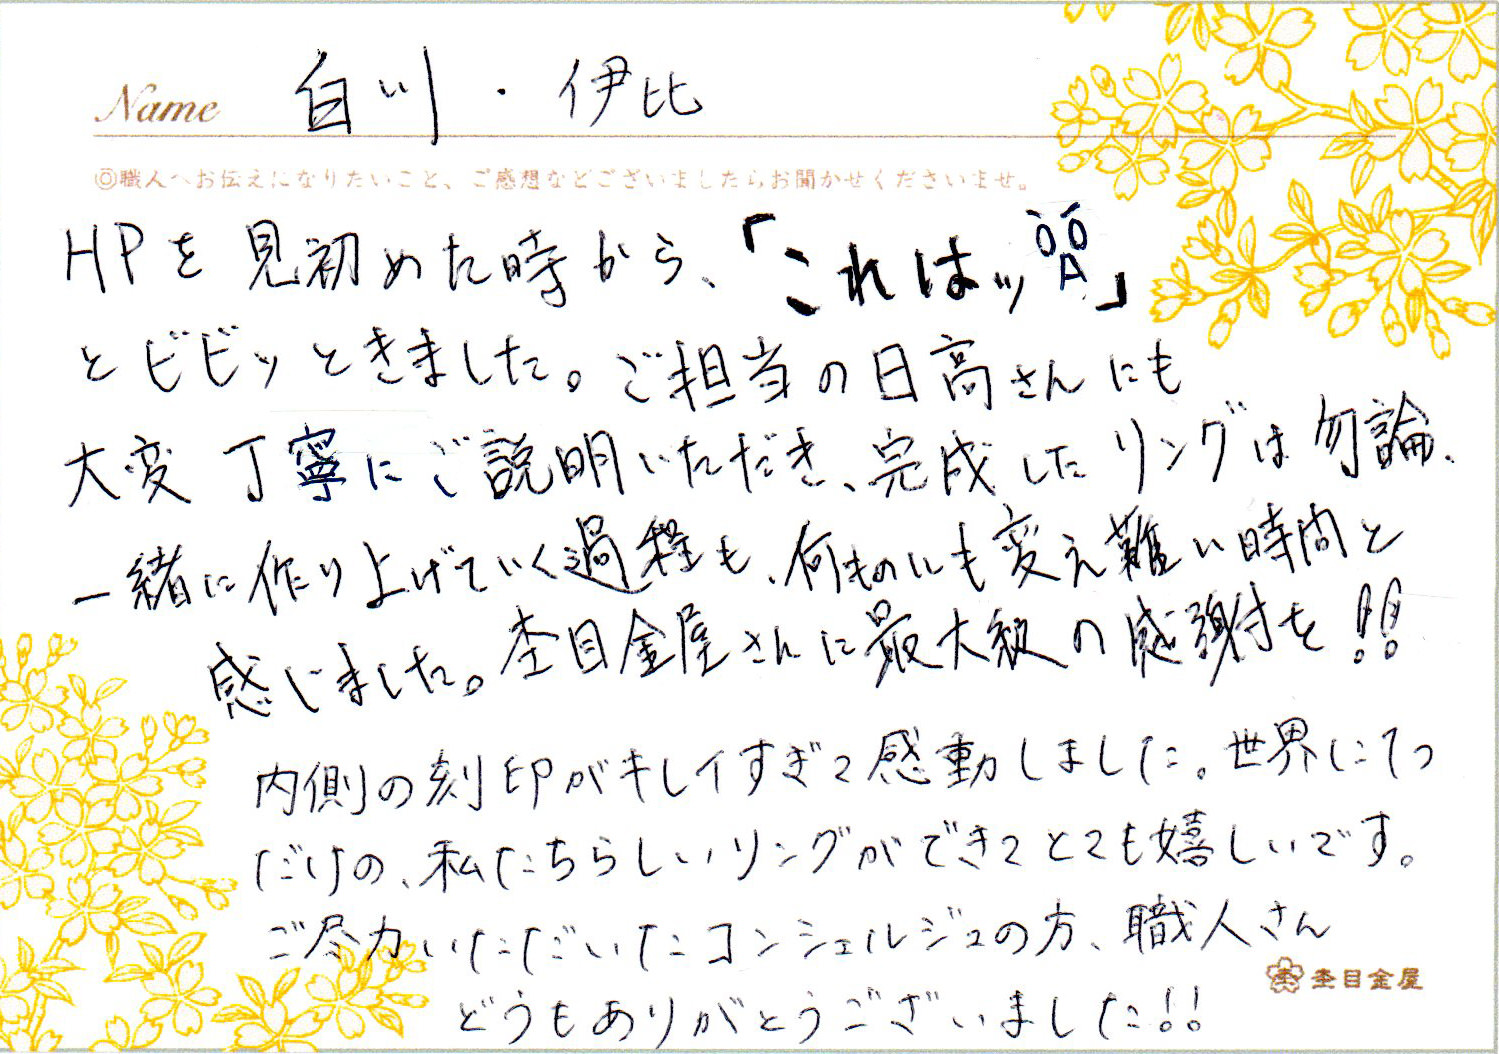 Name 白川・伊比
◎職人へお伝えになりたいこと、ご感想などございましたらお聞かせくださいませ。
HPを見初めた時から、「これはッ」
とビビッときました。ご担当の日高さんにも
大変丁寧にご説明いただき、完成したリングは勿論、
一緒に作り上げていく過程も、何ものにも変え難い時間と
感じました。杢目金屋さんに最大級の感謝を!!
内側の刻印がキレイすぎて感動しました。世界に1つ
だけの、私たちらしいリングができてとても嬉しいです。
ご尽力いただいたコンシェルジュの方、職人さん
どうもありがとうございました!!
杢目金屋